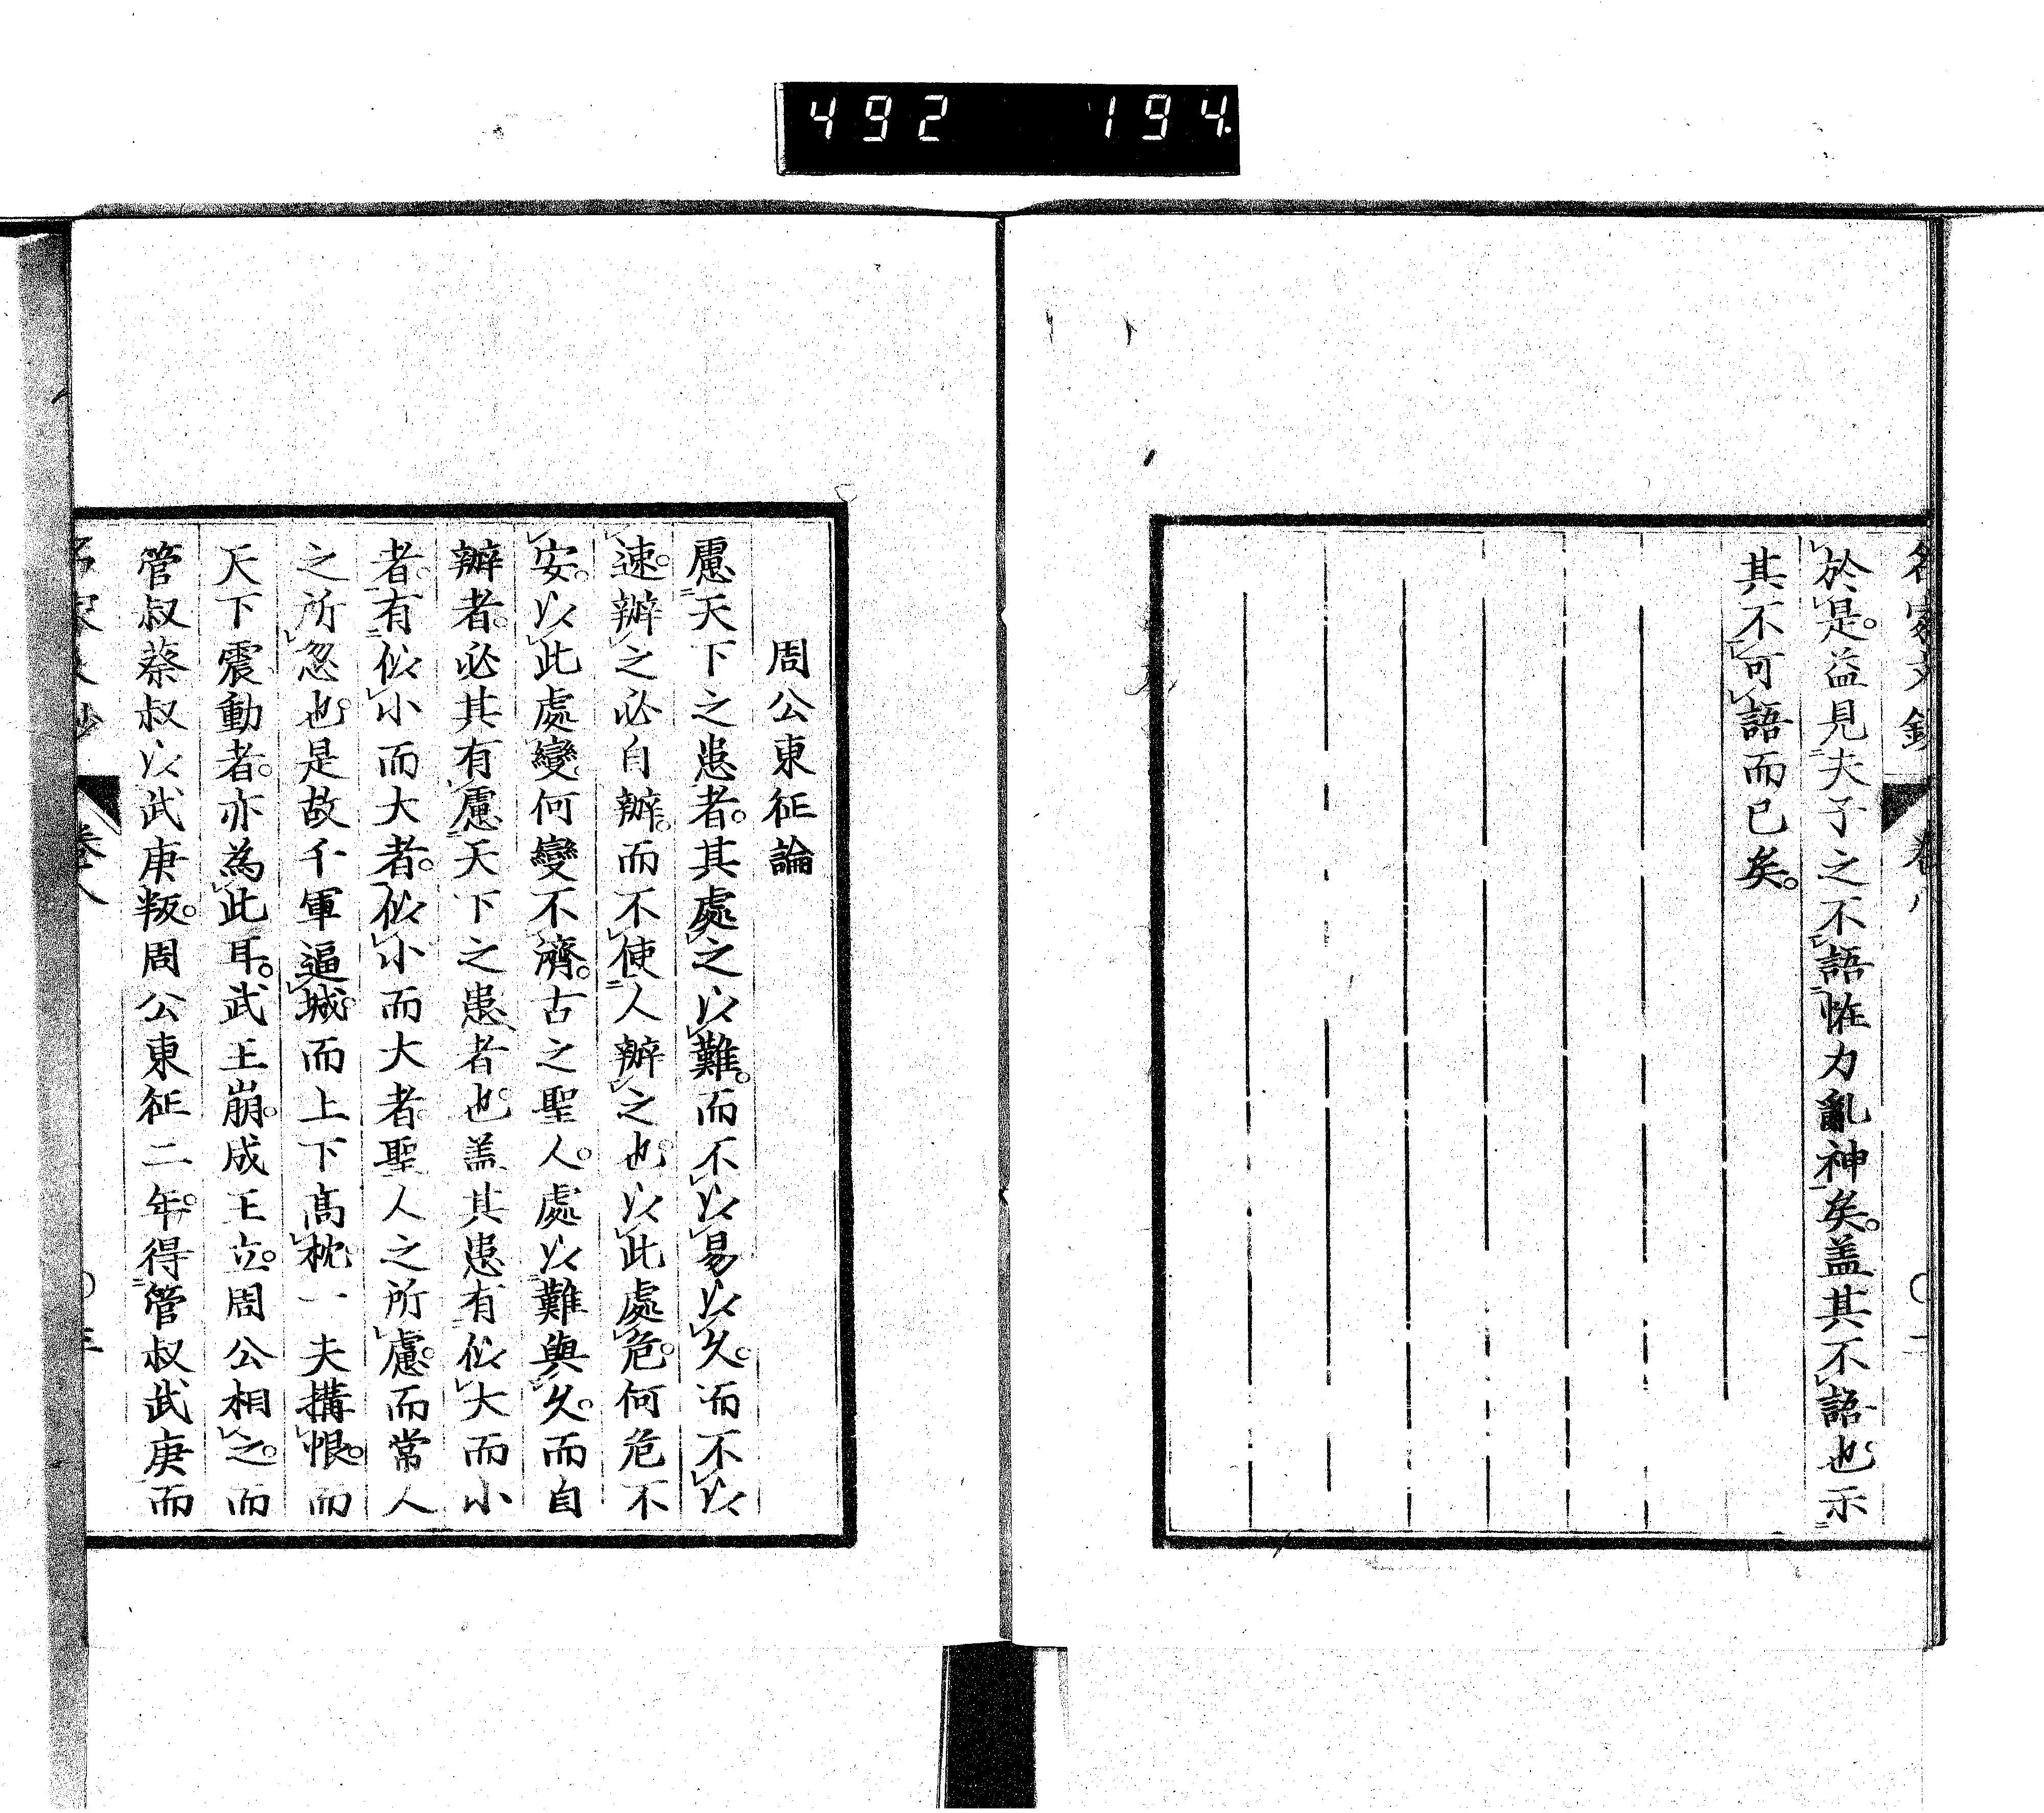 492 194
名家文鈔 卷八
於是。益見夫子之不語恠力亂神矣。盖其不語也示
其不可語而已矣。
周公東征論
慮天下之患者。其處之以難。而不以易以久。而不以
速。辦之必自辦。而不使人辦之也。以此處危。何危不
安。以此處變。何變不濟。古之聖人。處以難與久。而自
辦者。必其有慮天下之患者也。盖其患有似大而小
者。有似小而大者。似小而大者。聖人之所慮。而常人
之所忽也。是故千軍逼城。而上下高枕。一夫搆恨。而
天下震動者。亦為此耳。武王崩。成王立。周公相之。而
管叔蔡叔以武庚叛。周公東征二年。得管叔武庚而
名家文鈔 卷八